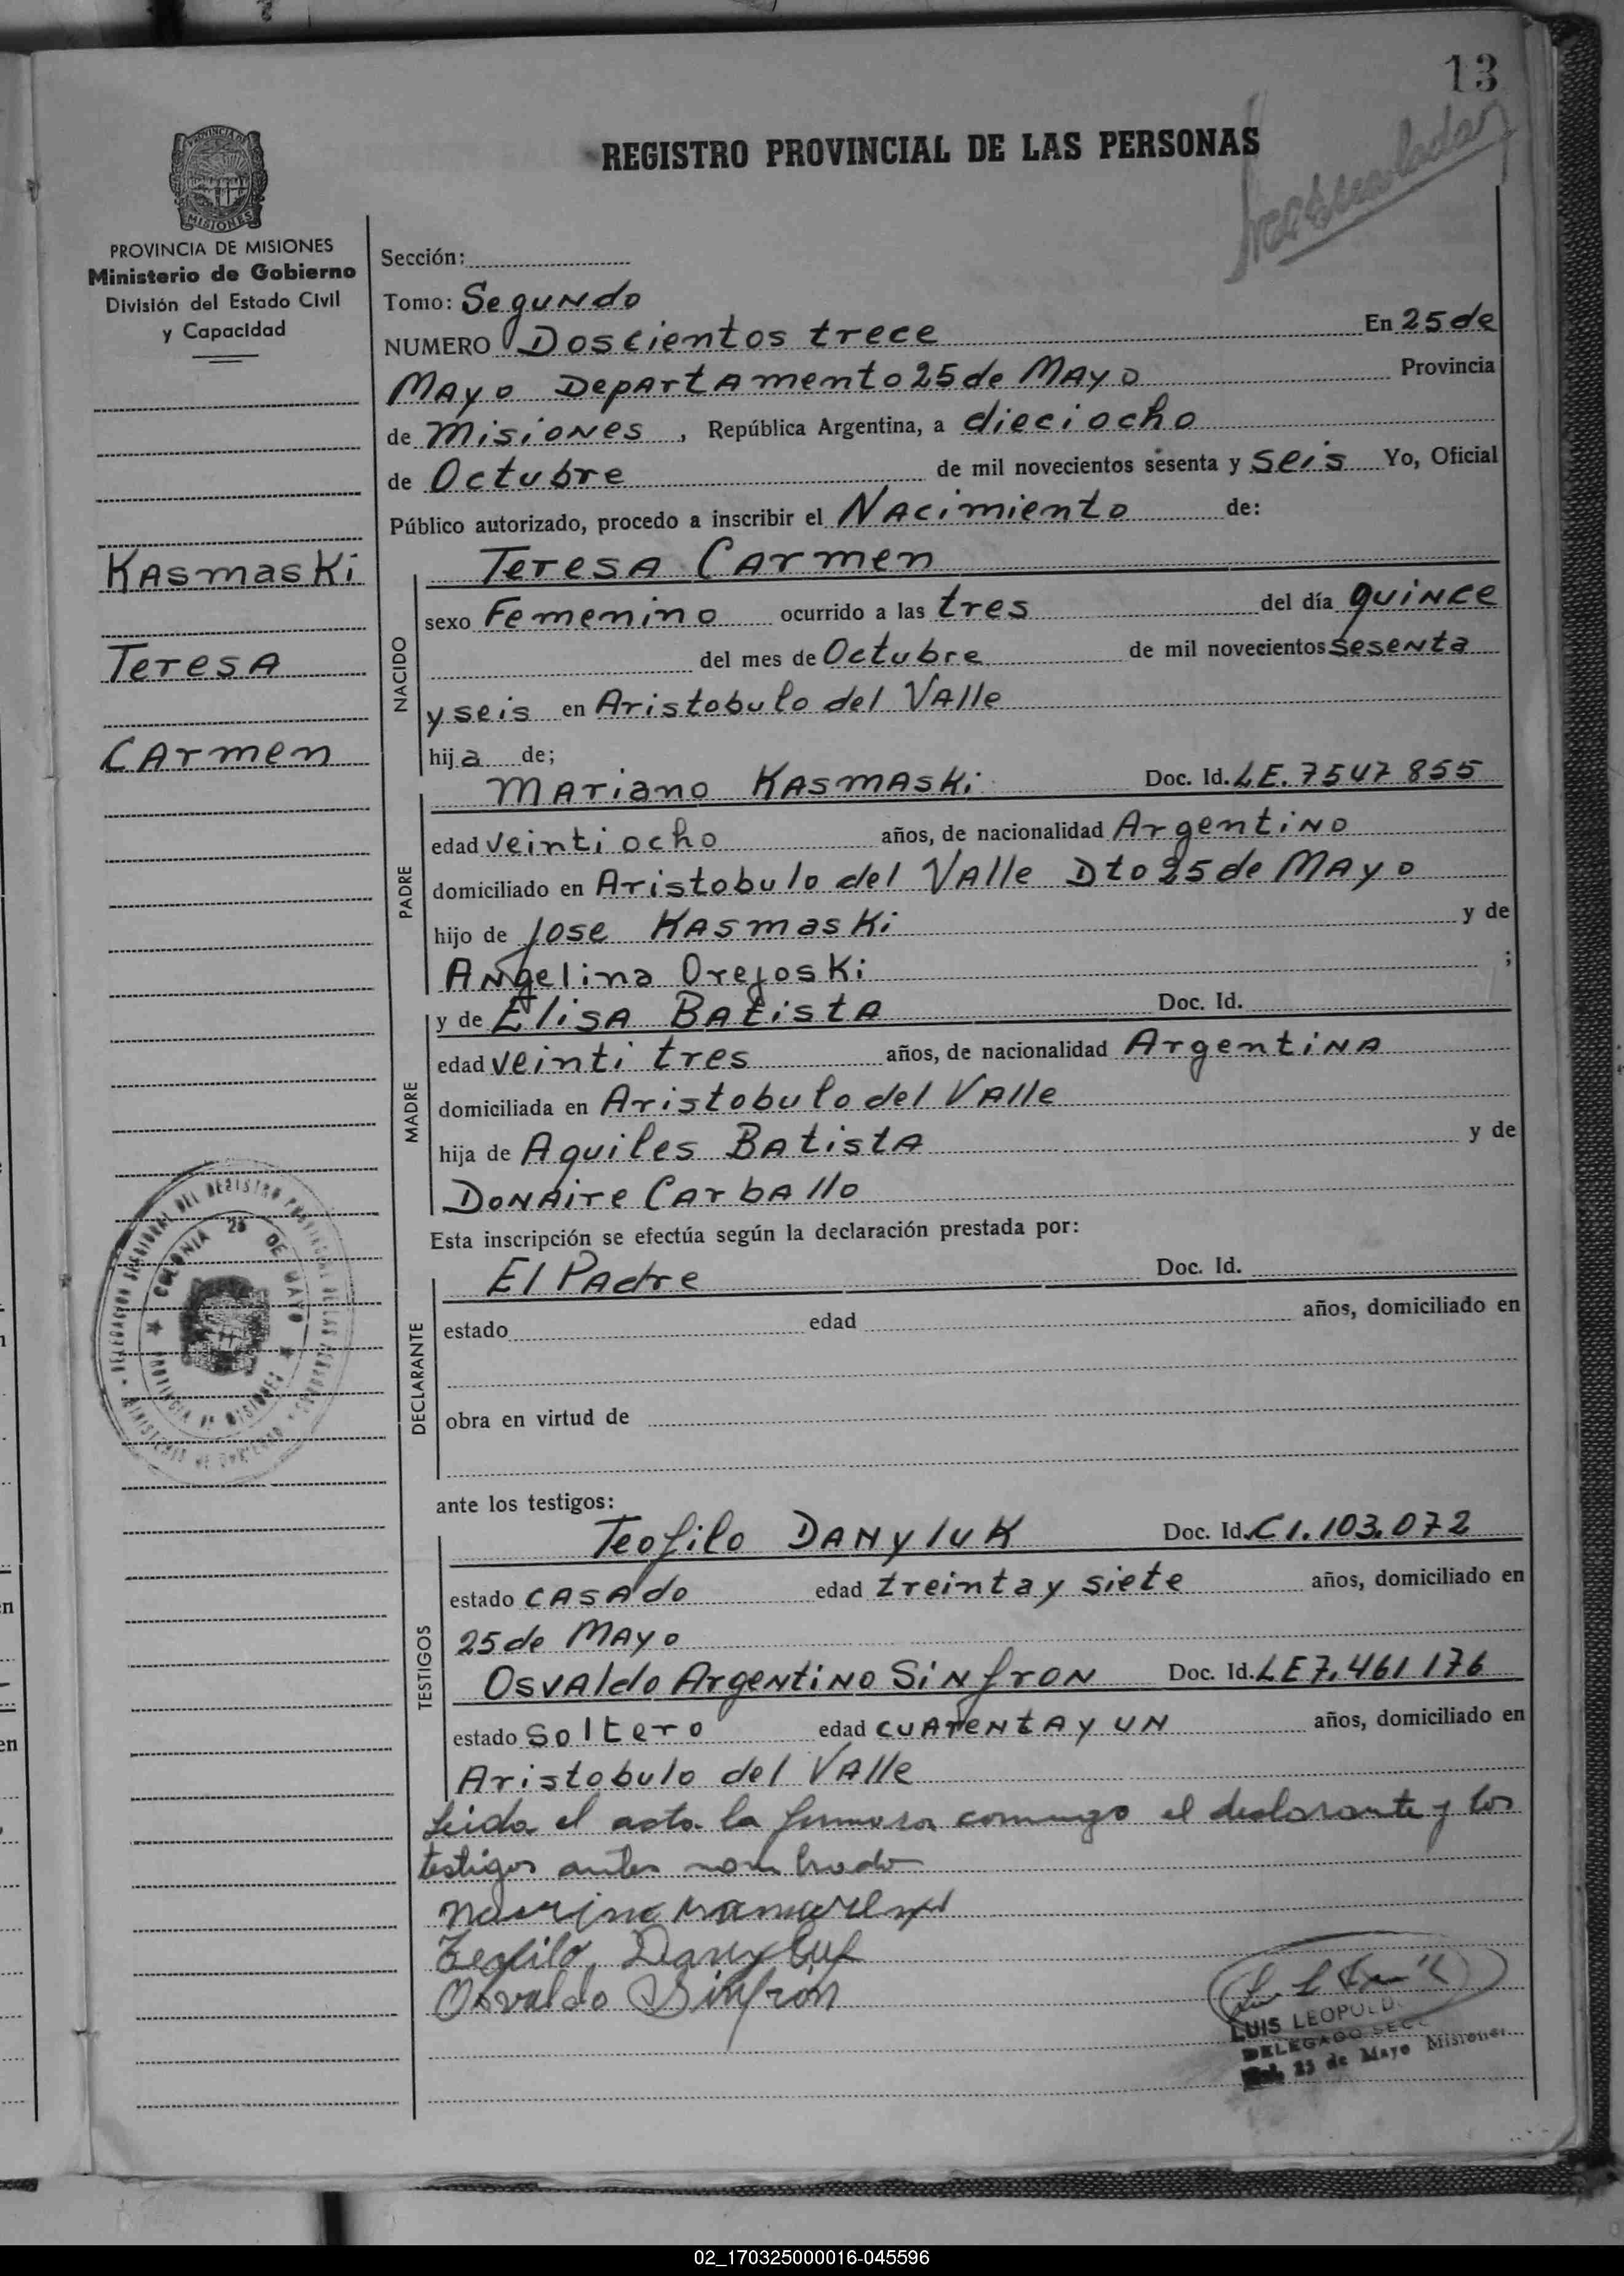 13
REGISTRO PROVINCIAL DE LAS PERSONAS
PROVINCIA DE
MISIONES
PROVINCIA DE MISIONES
Ministerio de Gobierno
División del Estado Civil
y Capacidad
Kasmaski
Teresa
Carmen
Sección:
Tomo: Segundo
NUMERO Doscientos trece En 25 de
Mayo Departamento 25 de Mayo Provincia
de Misiones, República Argentina, a dieciocho
de Octubre de mil novecientos sesenta y seis Yo, Oficial
Público autorizado, procedo a inscribir el Nacimiento de:
NACIDO
Teresa Carmen
sexo Femenino ocurrido a las tres del día quince
del mes de Octubre de mil novecientos sesenta
y seis en Aristobulo del Valle
hija de;
PADRE
Mariano Kasmaski Doc. Id. LE. 7547855
edad veinti ocho años, de nacionalidad Argentino
domiciliado en Aristobulo del Valle Dto 25 de Mayo
hijo de Jose Kasmaski y de
Angelina Orejoski ;
MADRE
y de Elisa Batista Doc. Id.
edad veinti tres años, de nacionalidad Argentina
domiciliada en Aristobulo del Valle
hija de Aquiles Batista y de
Donaire Carballo
Esta inscripción se efectúa según la declaración prestada por:
DECLARANTE
El Padre Doc. Id.
estado edad años, domiciliado en
obra en virtud de
ante los testigos:
TESTIGOS
Teofilo Danyluk Doc. Id. C1.103.072
estado casado edad treinta y siete años, domiciliado en
25 de Mayo
Osvaldo Argentino Sinfron Doc. Id. LE 7.461176
estado soltero edad cuarenta y un años, domiciliado en
Aristobulo del Valle
Leida el acta la firmaron conmigo el declarante y los
testigos antes nombrado
Teofilo Danyluk
Osvaldo Sinfron
COLONIA 25 DE MAYO
PROVINCIA DE MISIONES
LUIS LEOPOLD
DELEGADO SECC
Col. 25 de Mayo Misiones
02_170325000016-045596